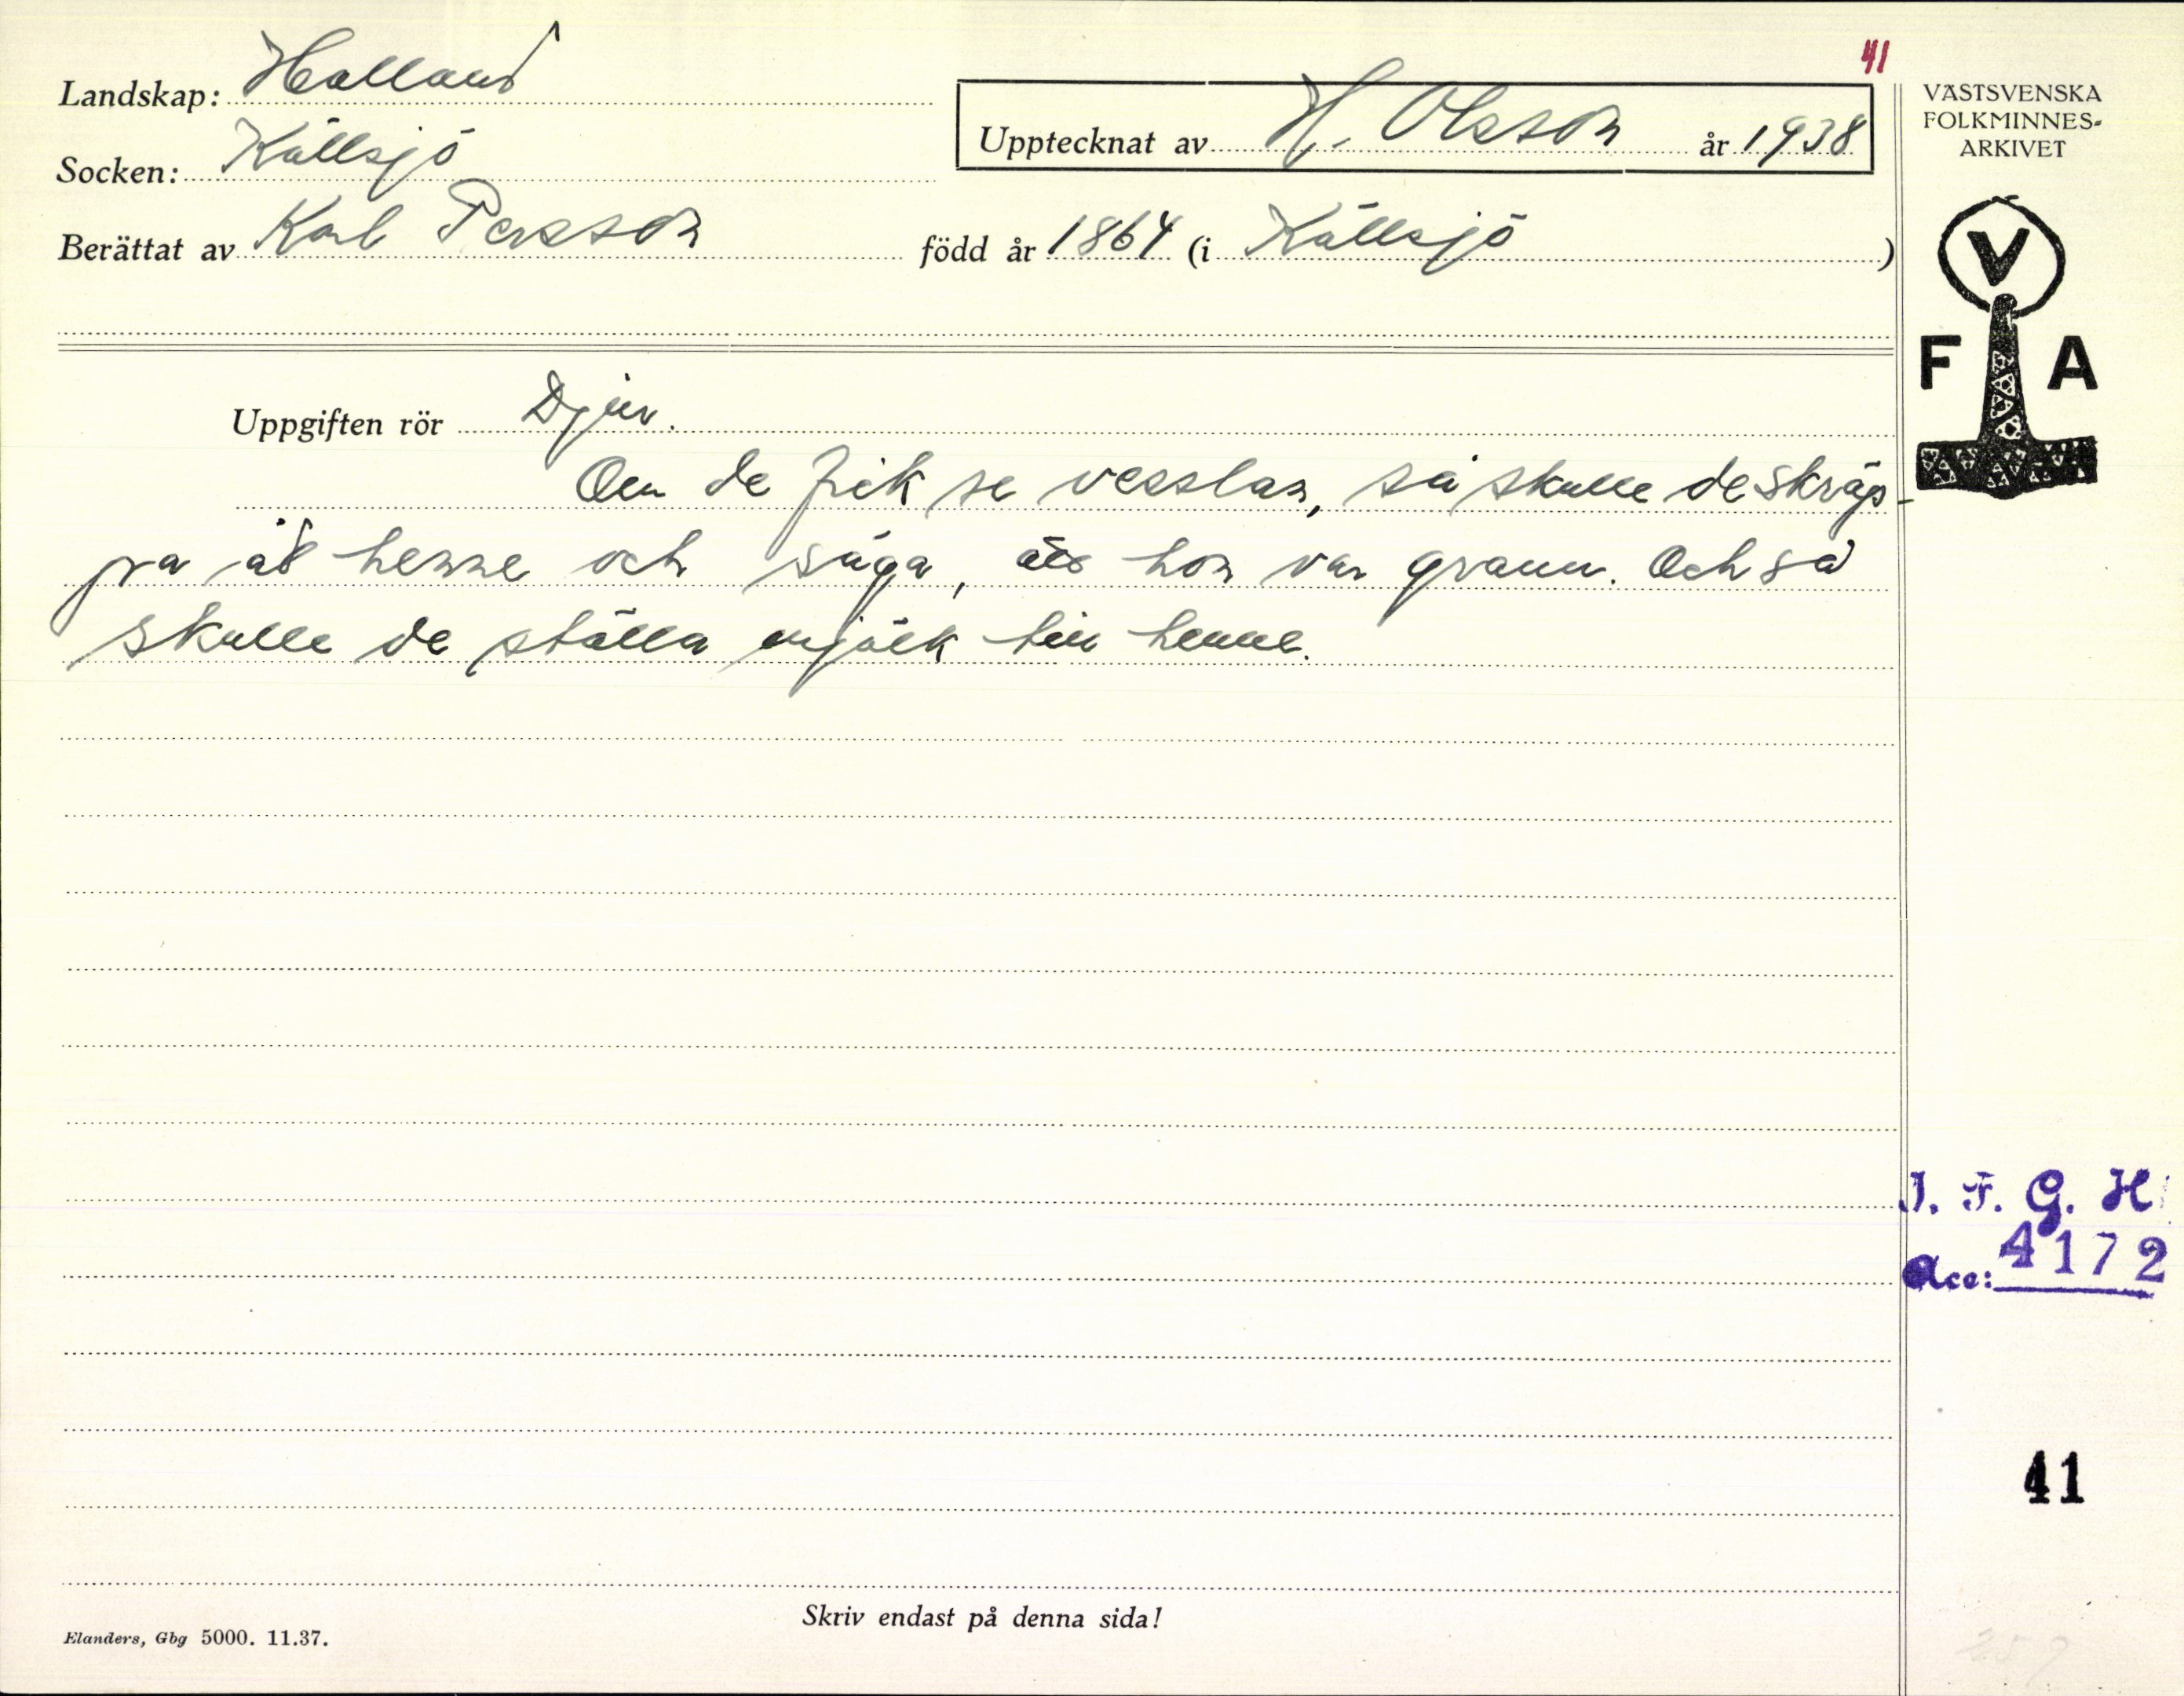 41
Landskap: Halland
Upptecknat av H. Olsson år 1938
Socken: Källsjö
Berättat av Karl Persson född år 1864 (i Källsjö)
VÄSTSVENSKA
FOLKMINNES-
ARKIVET
V
F A
Uppgiften rör Djur.
Om de fik se vesslan, så skulle de skräp-
pa åt henne och säga, att hon var grann. Och så
skulle de ställa mjölk till henne.
I. F. G. H.
Acc: 4172
41
Skriv endast på denna sida!
Elanders, Gbg 5000. 11.37.